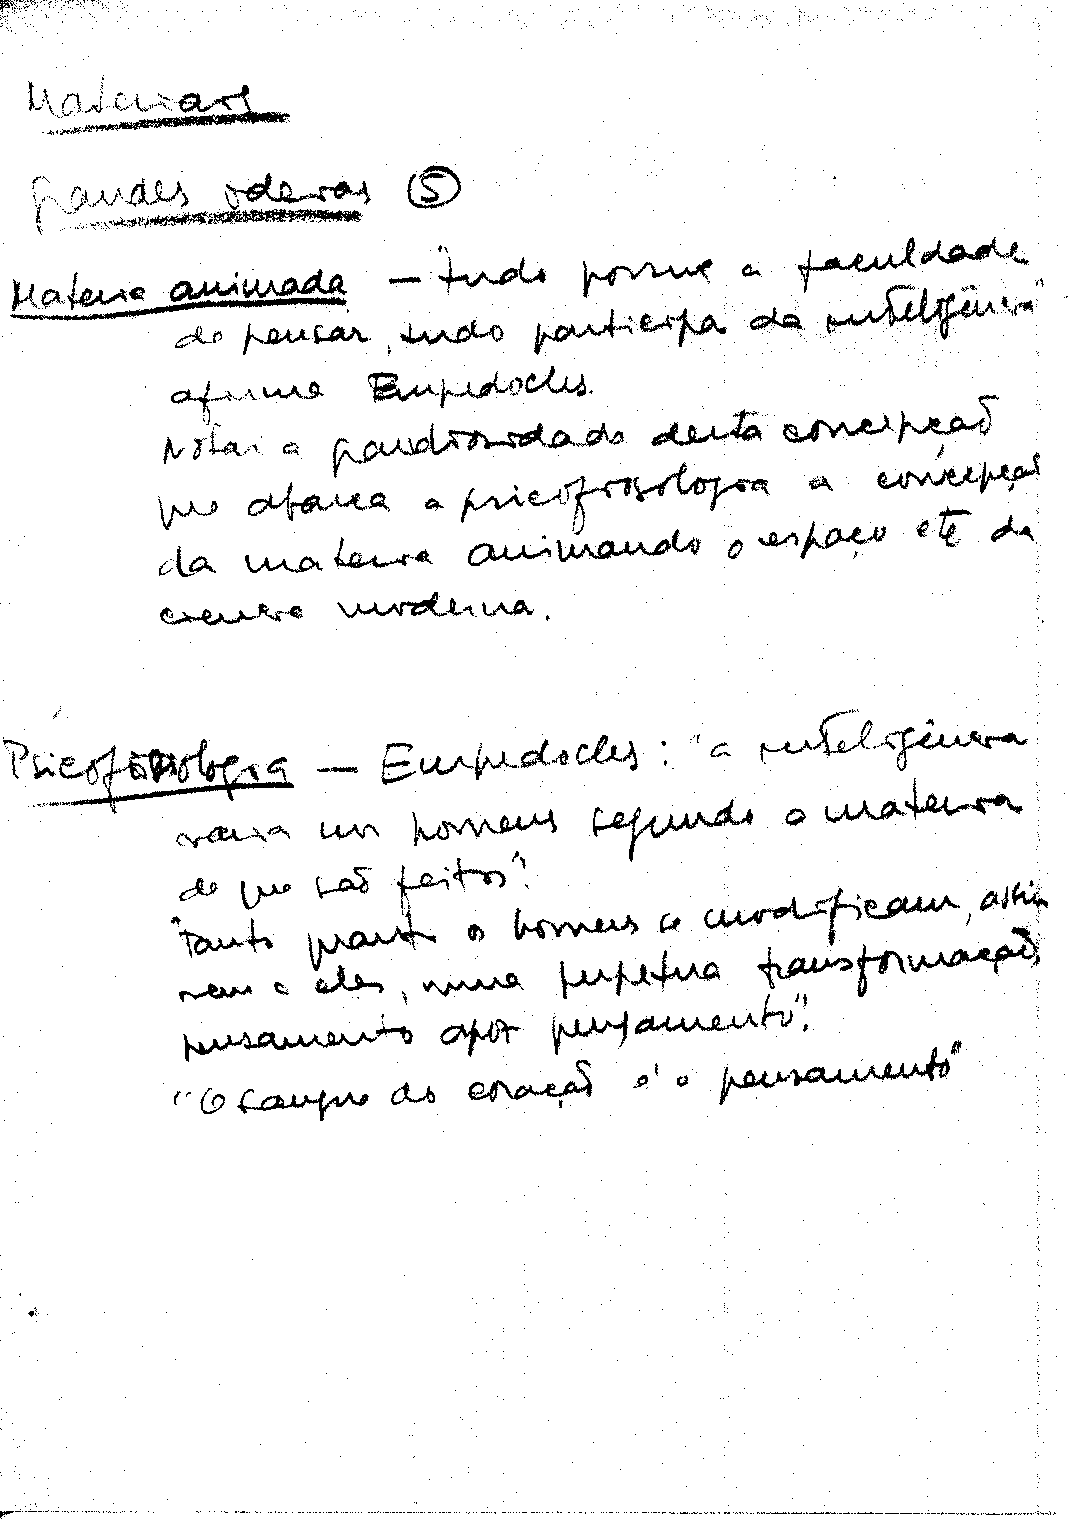 Materiais
Grandes ideias (5)
Materia animada — "tudo possue a faculdade
de pensar, tudo participa da inteligência"
afirma Empedocles.
Notar a grandiosidade desta concepção
que abarca a psicofisiologia a concepção
da materia animando o espaço etc da
ciencia moderna.
Psicofisiologia — Empedocles: "a inteligência
varia nos homens segundo a materia
de que são feitos".
"Tanto quanto os homens se modificam, assim
vem a eles, numa perpetua transformação,
pensamento após pensamento".
"O sangue do coração é o pensamento"